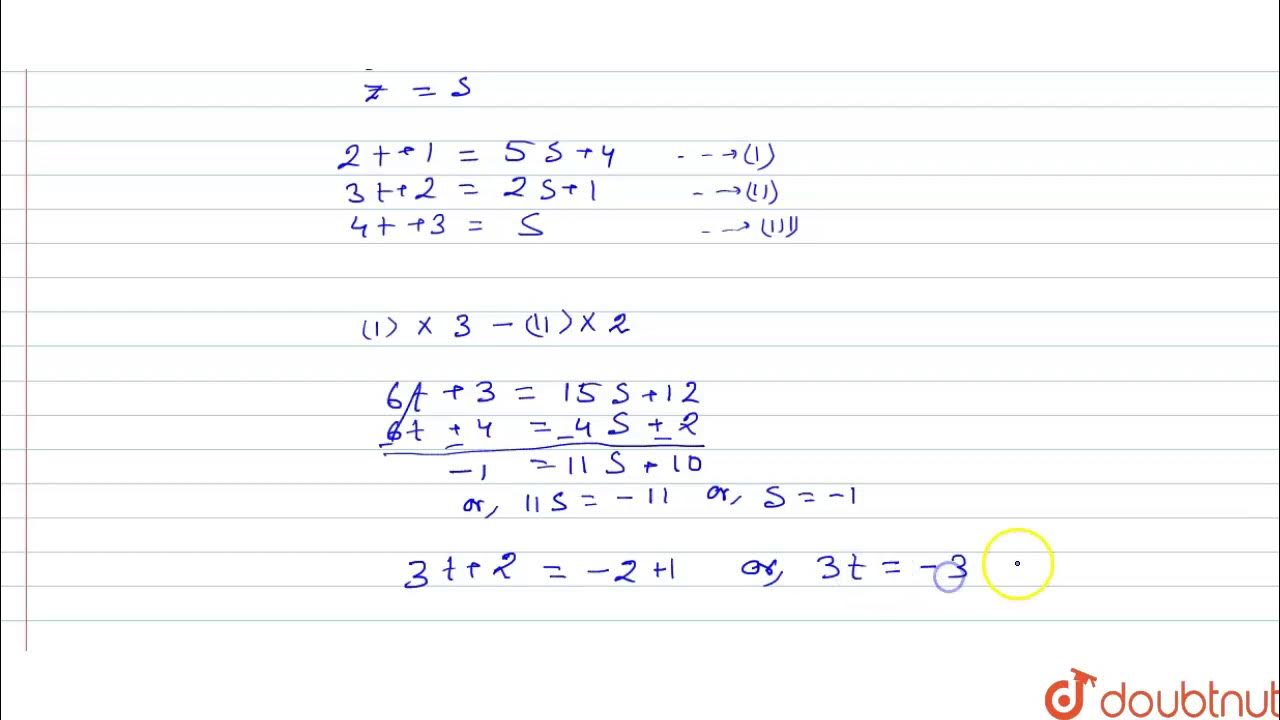 z = s
2t+1 = 5s+4 - - → (I)
3t+2 = 2s+1 - → (II)
4t+3 = s - → (III)
(I) × 3 - (II) × 2
6t + 3 = 15s + 12
6t + 4 = 4s + 2
- - - -
-1 = 11s + 10
or, 11s = -11 or, s = -1
3t+2 = -2+1 or, 3t = -3
doubtnut